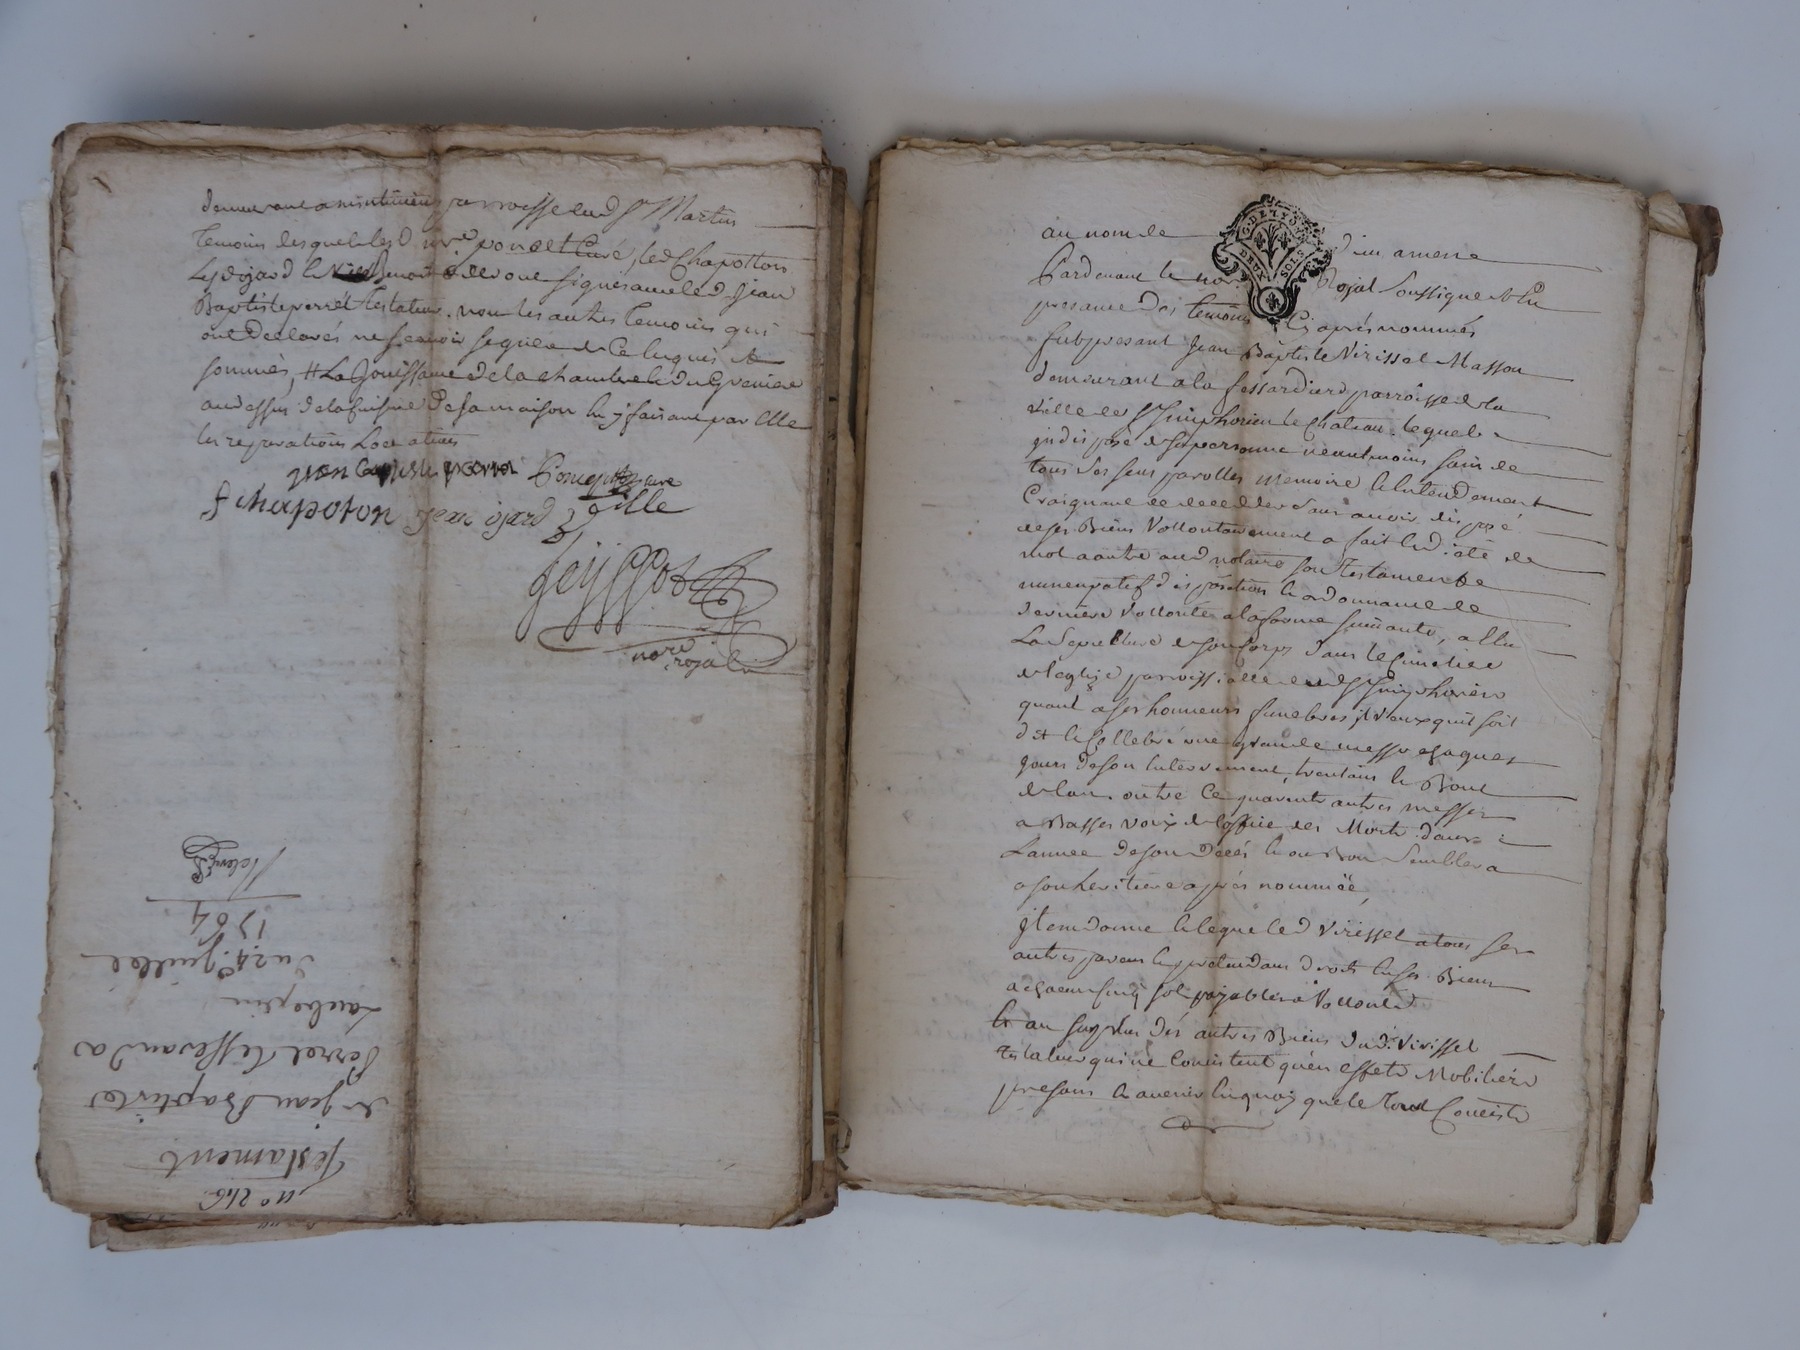 demeurant paroisse dud St Martin
Temoins lesquels led poncet Curé, led Chapotton
Led ojard le ont signés avec led Jean
Baptiste perret testateur. non les autres temoins qui
ont declarés ne scavoir signer de ce Enquis &
sommés, # La Jouissance de la chambre & du Grenier
audessus de la cuisine de sa maison luy faisant par Elle
les reparations Locatives
jean baptiste perret Poncet curé
f chapoton jean ojard gille
Jeyssot
nore royal
n° 246
Testament
de jean Baptiste
Perret tisserand a
Laubepin
Du 24e Juillet
1764
au nom de Dieu amen
G. DE LYON
DEUX SOLS
Pardevant le nore Royal Soussigné & En
presance des temoins Cy aprés nommés
fut present Jean Baptiste Virissel Masson
demeurant a la fessardiere parroisse de la
ville de St Simphorien le Chateau. lequel
indisposé de sa personne neantmoins sain de
tous ses sens parolles memoire & Entendement
Craignant de deceder sans avoir disposé
de ses Biens Vollontairement a fait & dicté de
mot a autre aud notaire son testament
nuncupatif disposition & ordonnance de
derniere Vollonté a la forme suivante, a Elu
La Sepulture de son Corps dans le Cimetiere
de l'eglise parroissialle dud St Simphorien
quant a ses honneurs funebres il veux quil soit
dit & Cellebré une grande messe chaques
jours de son Enterrement, trentain & Bout
de lan. outre Ce quarente autres messes
a Basses voix de l'office des Morts dans
L'année de son Décés & ou Bon Semblera
a son heritiere aprés nommée,
Item donne & legue led Virissel a tous ses
autres parens & pretendans droits En ses Biens
a chacun Cinq sols payables a Vollonté
& au surplus dés autres Biens dud. Virissel
testateur qui ne Consistent quén effets Mobiliers
presans & avenir En quoy que le tout Consiste